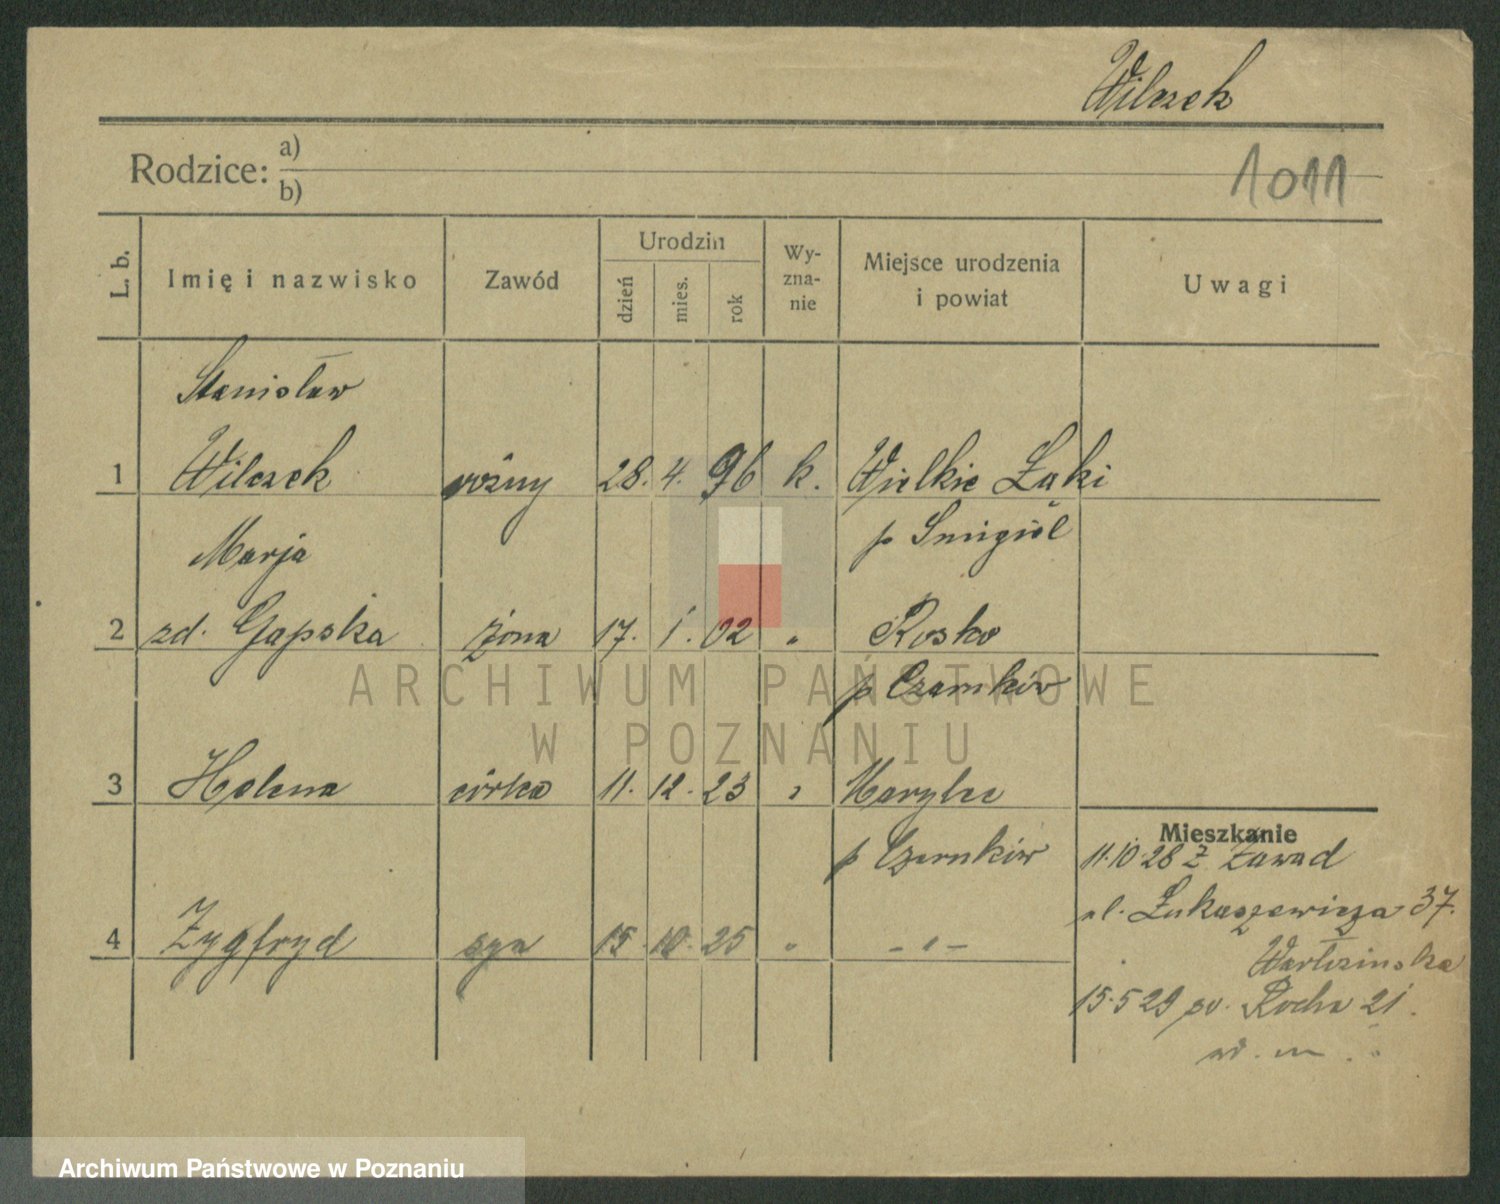 Wilczek
Rodzice: a)
b)
1011
L. b. Imię i nazwisko Zawód Urodzin Wy-zna-nie Miejsce urodzenia i powiat Uwagi
dzień mies. rok
Stanisław
1 Wilczek 28. 4. 96 k. Wielkie Łąki
Marja p Śmigiel
2 zd. Gapska żona 17. 1. 02 " Rosko
p Czarnków
3 Helena córka 11. 12. 23 "
p Czarnków
4 Zygfryd syn 15. 10. 25 " - " -
Mieszkanie
11.10 28 z Zawad
ul. Łukaszewicza 37.
15.5 29 św. Rocha 21.
ARCHIWUM PAŃSTWOWE
W POZNANIU
Archiwum Państwowe w Poznaniu